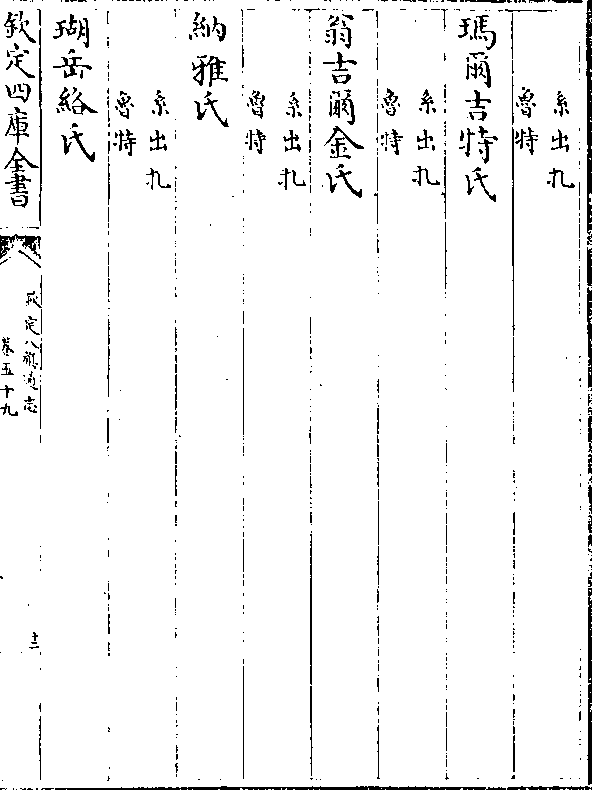 系出扎
魯特
瑪爾吉特氏
系出扎
魯特
翁吉爾金氏
系出扎
魯特
納雅氏
系出扎
魯特
瑚岳絡氏
欽定四庫全書
欽定八旗通志
卷五十九
十二